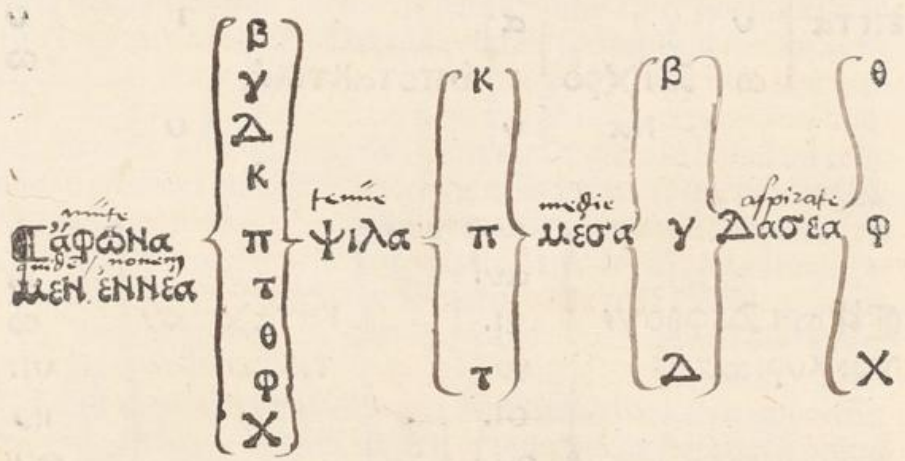 mute
ἄφωνα
μεν ἐννέα
β
γ
Δ
κ
π
τ
θ
φ
χ
tenue
ψιλα
κ
π
τ
medie
μεσα
β
γ
Δ
aspirate
Δασέα
θ
φ
χ